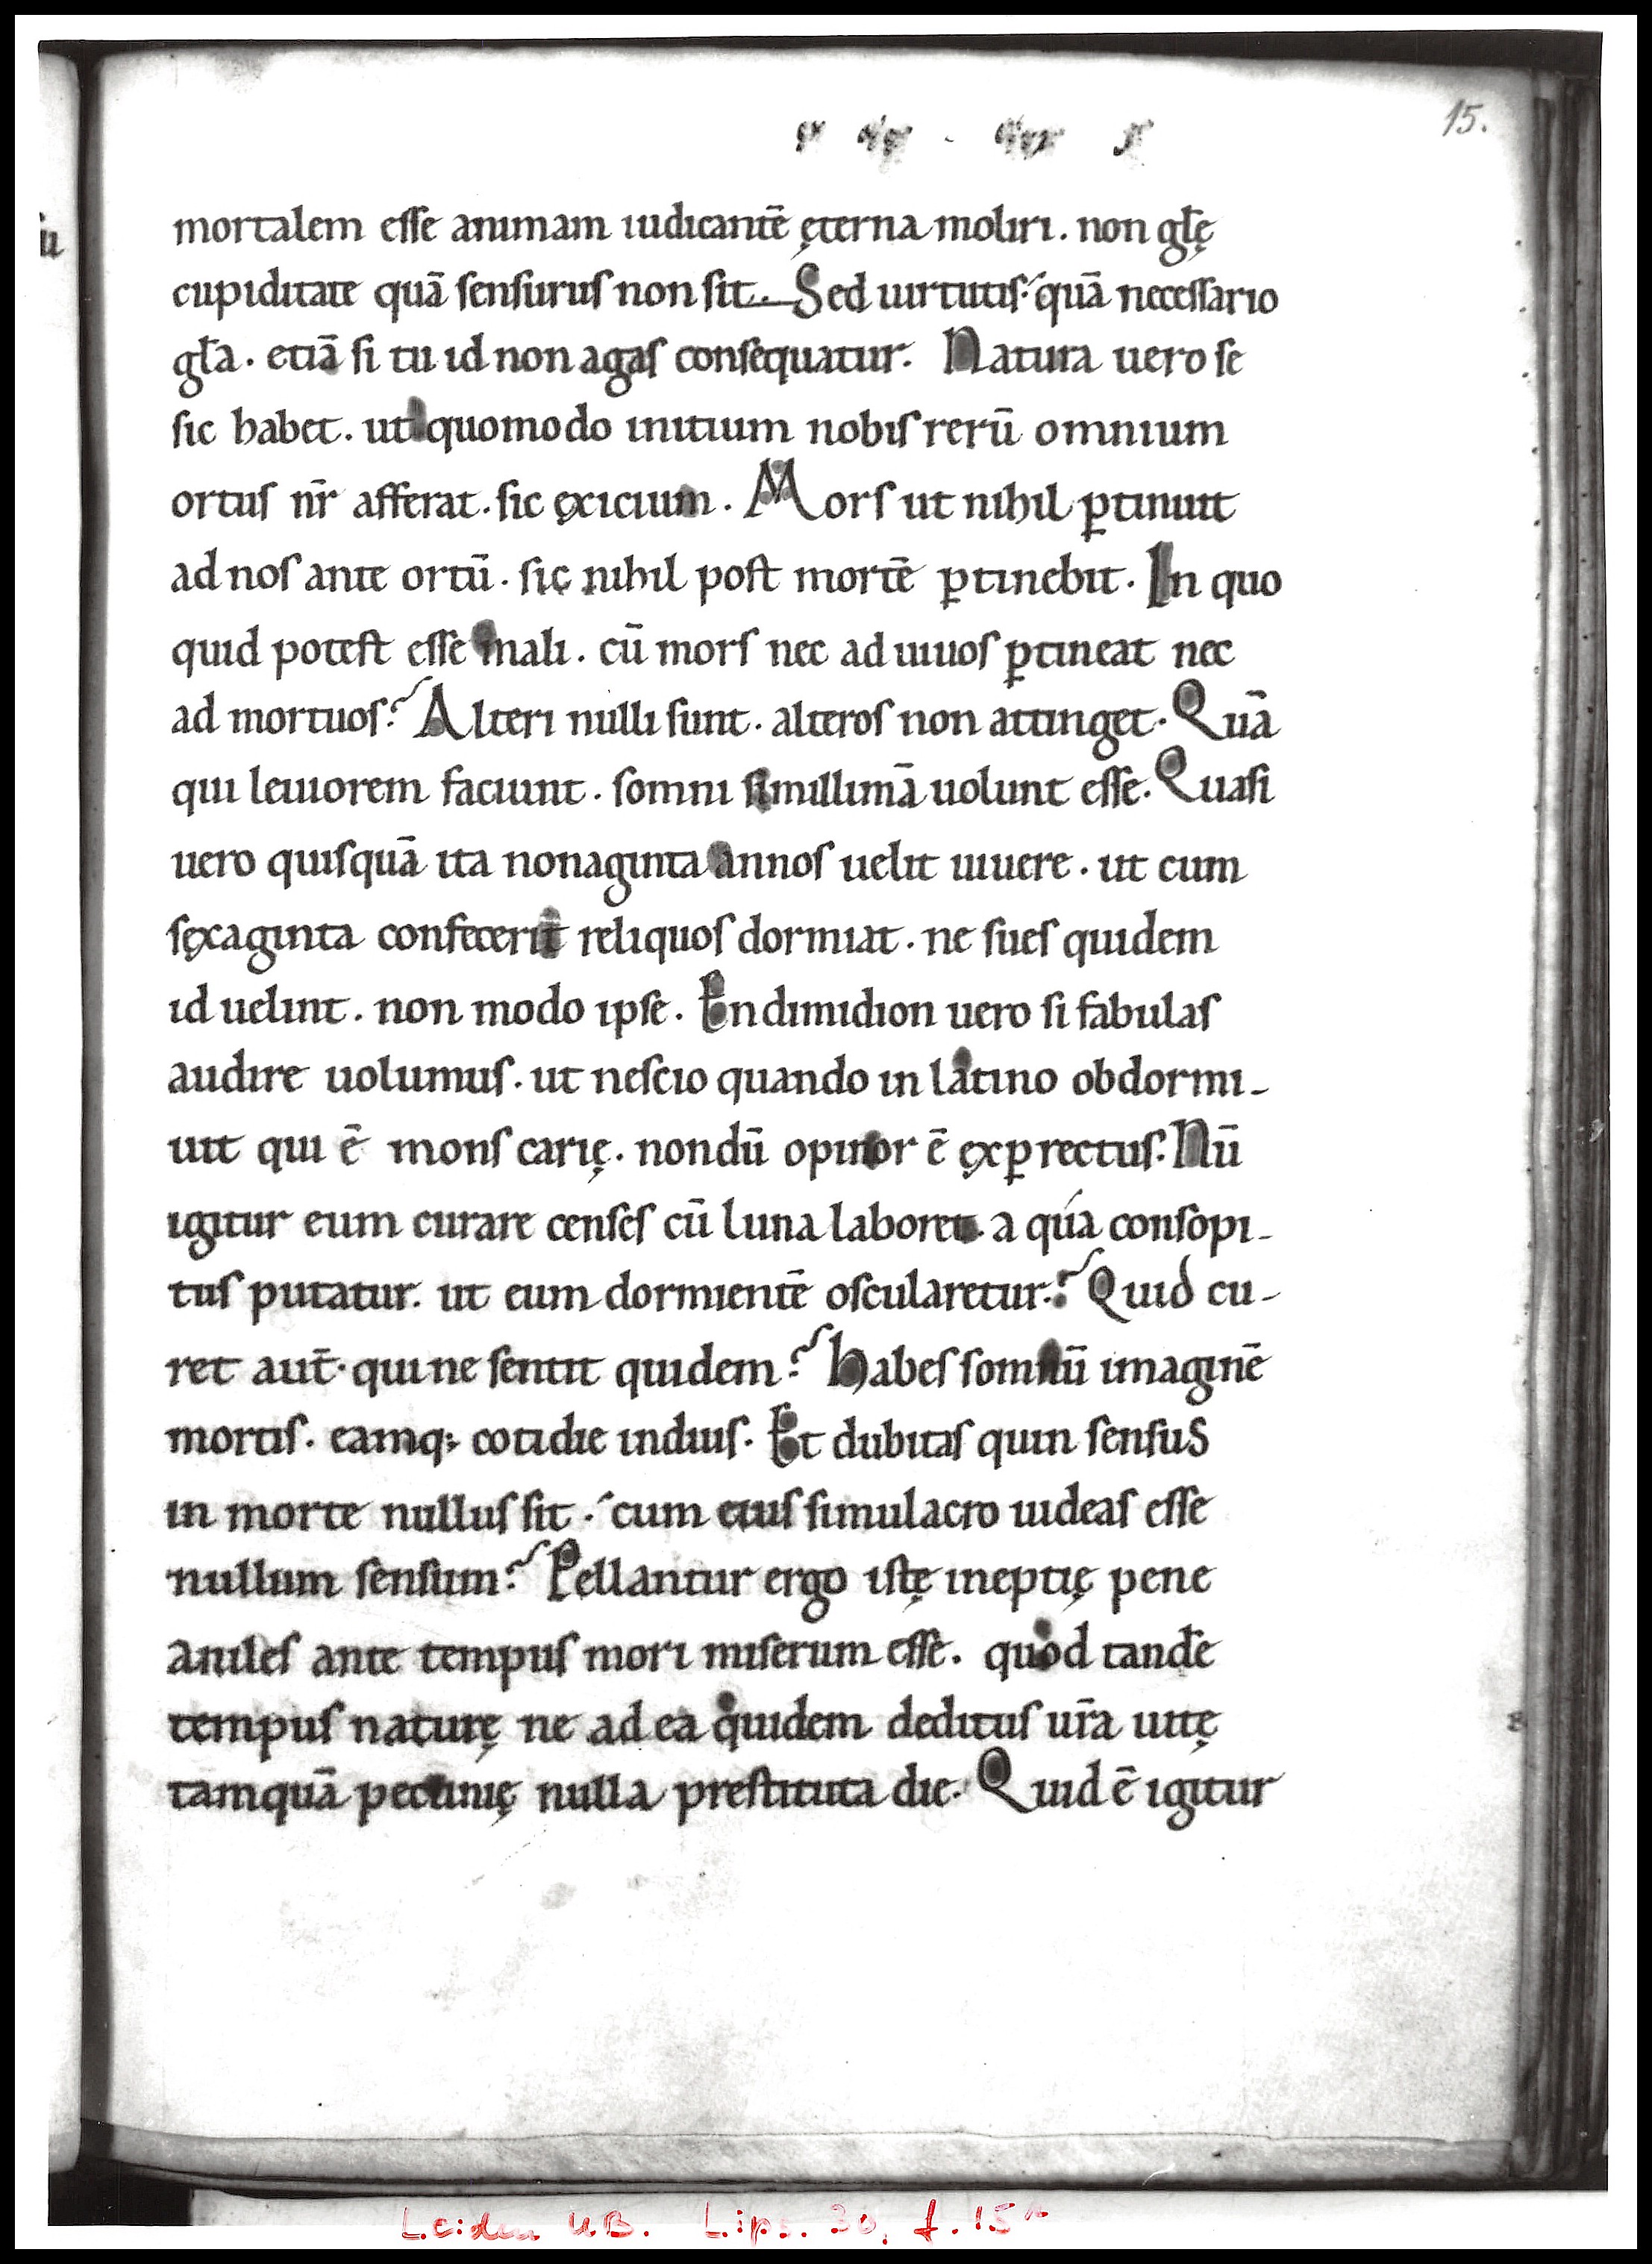 15.
mortalem esse animam iudicantē ęterna moliri . non gl̄ę
cupiditate quā sensurus non sit . Sed uirtutis . quā necessario
gl̄a . etiā si tu id non agas consequatur . Natura uero se
sic habet . ut quomodo initium nobis rerū omnium
ortus nr̄ afferat . sic ęxicium . Mors ut nihil ꝑtinuit
ad nos ante ortū . sic nihil post mortē ꝑtinebit . In quo
quid potest esse mali . cū mors nec ad uiuos ꝑtineat nec
ad mortuos ? Alteri nulli sunt . alteros non attinget . Quā
qui leuiorem faciunt . somni simillimā uolunt esse . Quasi
uero quisquā ita nonaginta annos uelit uiuere . ut cum
sęxaginta confecerit reliquos dormiat . ne sues quidem
id uelint . non modo ipse . Endimidion uero si fabulas
audire uolumus . ut nescio quando in latino obdormi-
uit qui ē mons carię . nondū opinor ē ęxꝑrectus . Nū
igitur eum curare censes cū luna laboret . a qua consopi-
tus putatur . ut eum dormientē oscularetur ? Quid cu-
ret aut̄ . qui ne sentit quidem ? Habes somnū imaginē
mortis . eamq; cotidie induis . Et dubitas quin sensus
in morte nullus sit . cum eius simulacro uideas esse
nullum sensum ? Pellantur ergo istę ineptię pene
aniles ante tempus mori miserum esse . quod tandē
tempus naturę ne ad ea quidem deditus ur̄a uitę
tamquā pecunię nulla prestituta die . Quid ē igitur
Leiden UB. Lips. 30, f. 15r